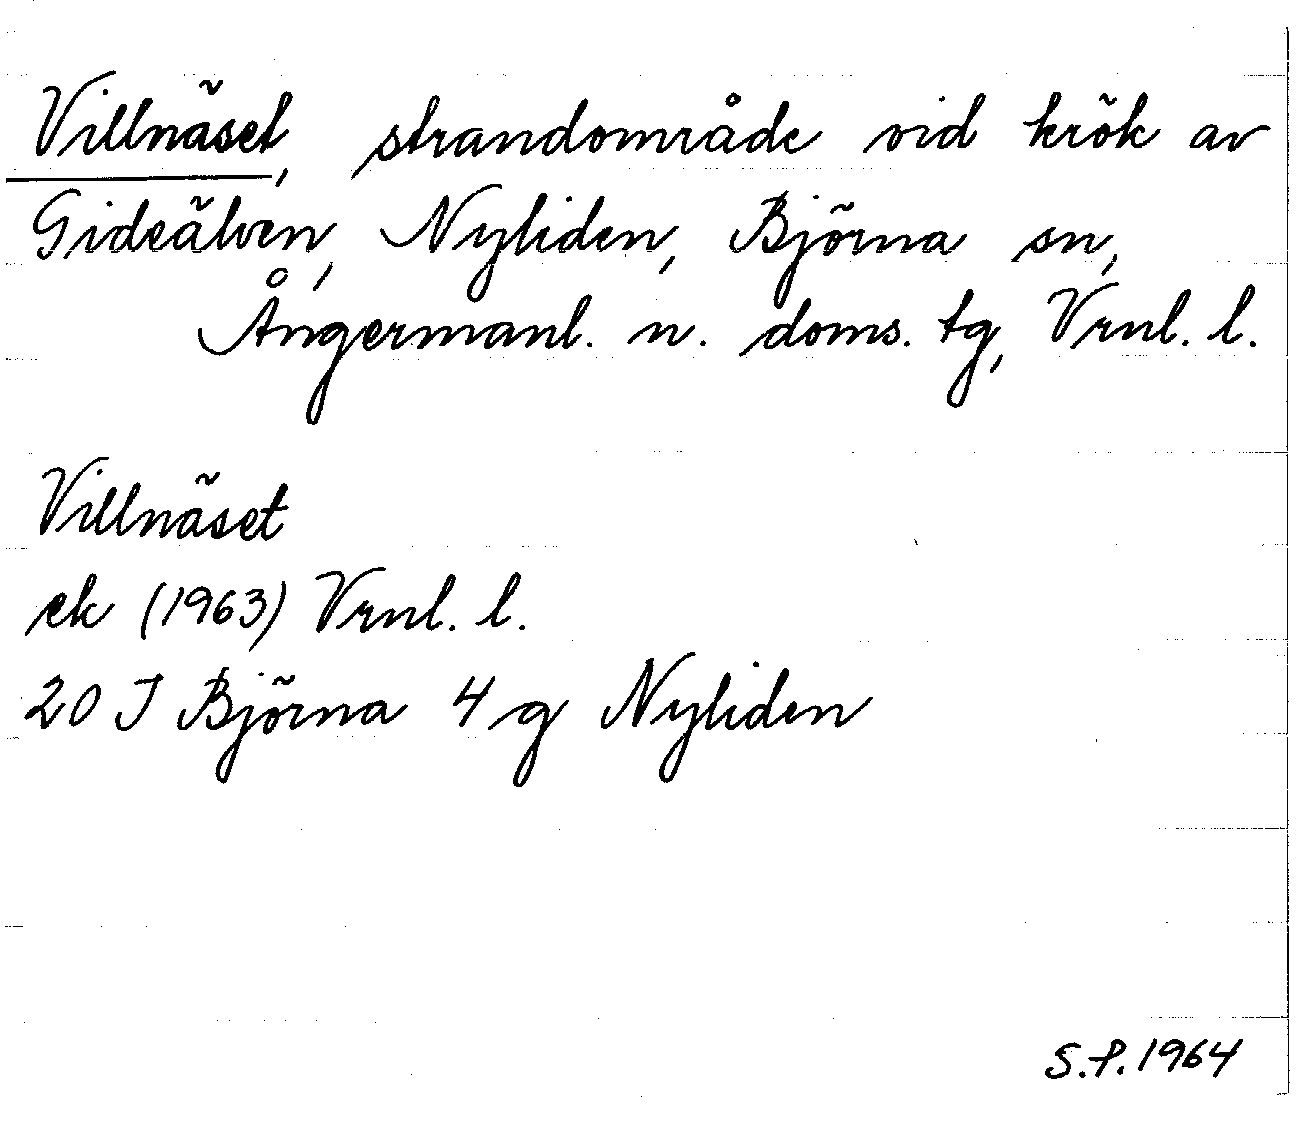 Villnäset, strandområde vid krök av
Gideälven, Nyliden, Björna sn,
Ångermanl. n. doms. tg, Vrnl. l.
Villnäset
ek (1963) Vrnl. l.
20 J Björna 4 g Nyliden
S.P. 1964